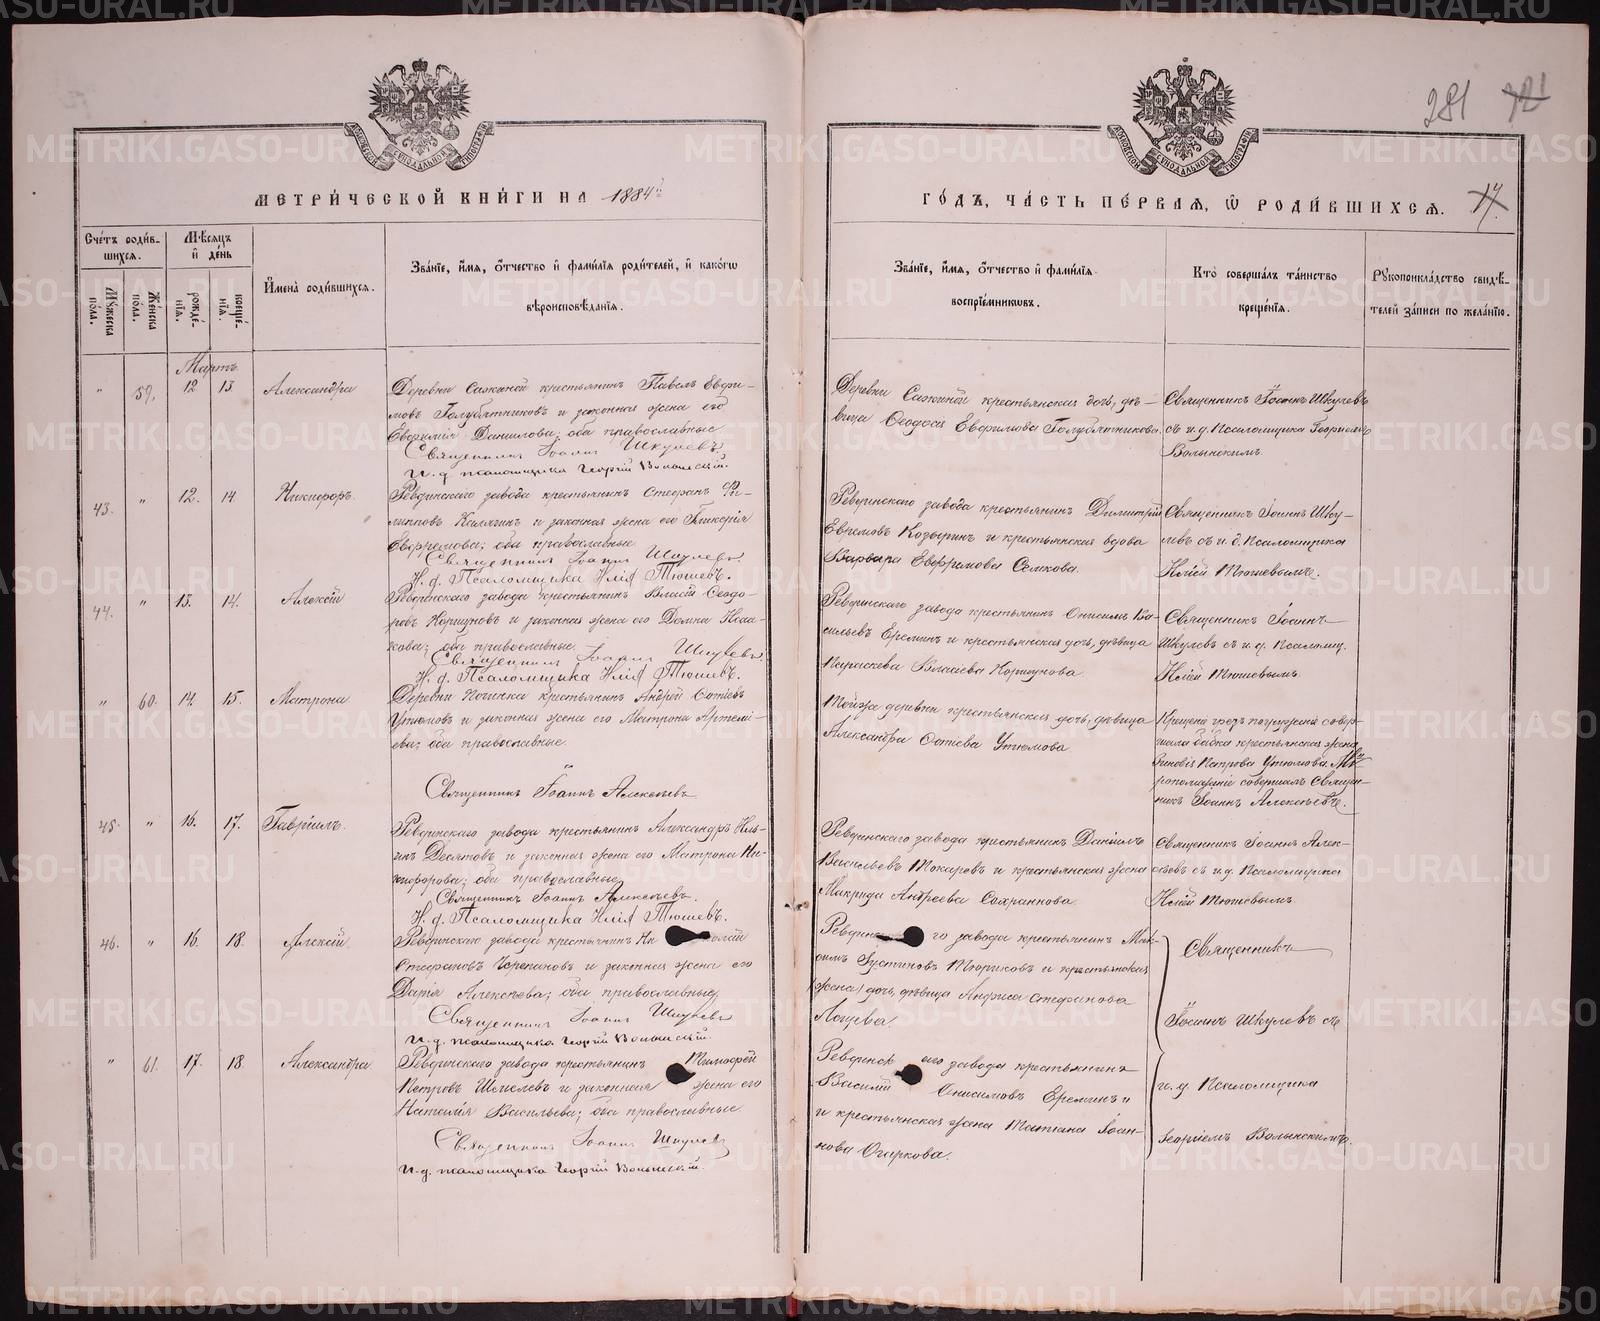 МЕТРИ́ЧЕСКОЙ КНИ́ГИ НА 1884й
ГО́ДЪ, ЧА́СТЬ ПЕ́РВАЯ, Ѡ РОДИ́ВШИХСЯ.
281
Сче́тъ роди́в-
шихся.
Мѣсяцъ
и день
Му́жеска
по́ла.
Же́нска
по́ла.
рожде́-
нїя.
креще́-
нїя.
Имена̀ роди́вшихся.
Зва́нїе, и́мя, о́тчество и фами́лїя роди́телей, и како́гѡ
вѣроисповѣ́данїя.
Зва́нїе, и́мя, о́тчество и фами́лїя
воспрїе́мникѡвъ.
Кто̀ соверша́лъ та́инство
креще́нїя.
Рꙋкоприкла́дство свидѣ́-
телей за́писи по жела́нїю.
Мартъ
" 59. 12 13 Александра
Деревни Сажиной крестьянинъ Павелъ Евфи-
мовъ Голубятниковъ и законная жена его
Евфимія Данилова; оба православные
Священникъ Іоаннъ Шкулевъ.
И. д. псаломщика Георгій Волынскій.
Деревни Сажиной крестьянская дочь, дѣ-
вица Ѳеодосія Евфимова Голубятникова.
Священникъ Іоаннъ Шкулевъ
съ и. д. Псаломщика Георгіемъ
Волынскимъ.
43. " 12. 14 Никифоръ.
Ревдинскаго завода крестьянинъ Стефанъ Фи-
липповъ Калягинъ и законная жена его Гликерія
Евфремова; оба православные
Священникъ Іоаннъ Шкулевъ
И. д. Псаломщика Илія Тюшевъ.
Ревдинскаго завода крестьянинъ Димитрій
Ефремовъ Козыринъ и крестьянская вдова
Варвара Евфимова Семкова.
Священникъ Іоаннъ Шку-
левъ съ и. д. Псаломщика
Иліей Тюшевымъ.
44. " 13. 14. Алексій
Ревдинскаго завода крестьянинъ Власій Ѳеодо-
ровъ Коршуновъ и законная жена его Домна Исаа-
кова; оба православные.
Священникъ Іоаннъ Шкулевъ.
И. д. Псаломщика Илія Тюшевъ.
Ревдинскаго завода крестьянинъ Онисимъ Ва-
сильевъ Ереминъ и крестьянская дочь, дѣвица
Параскева Власіева Коршунова.
Священникъ Іоаннъ
Шкулевъ съ и. д. Псаломщ.
Иліей Тюшевымъ.
" 60. 14. 15. Матрона
Деревни Починка крестьянинъ Андрей Сотіевъ
Утюмовъ и законная жена его Матрона Артемі-
ева; оба православные.
Священникъ Іоаннъ Алексѣевъ
Тойже деревни крестьянская дочь, дѣвица
Александра Сотіева Утюмова.
Крещеніе чрезъ погруженіе совер-
шала бабка крестьянская жена
Зиновія Петрова Утюмова. Мѵ-
ропомазаніе совершалъ Священ-
никъ Іоаннъ Алексѣевъ.
45. " 16. 17. Гавріилъ.
Ревдинскаго завода крестьянинъ Александръ Иль-
инъ Десятовъ и законная жена его Матрона Ни-
кифорова; оба православные
Священникъ Іоаннъ Алексѣевъ.
И. д. Псаломщика Илія Тюшевъ.
Ревдинскаго завода крестьянинъ Даніилъ
Васильевъ Токаровъ и крестьянская жена
Макрида Андреева Сохраннова.
Священникъ Іоаннъ Алек-
сѣевъ съ и. д. Псаломщика
Иліей Тюшевымъ.
46. " 16. 18. Алексій.
Ревдинскаго завода крестьянинъ Ни колай
Стефановъ Черепановъ и законная жена его
Дарія Алексѣева; оба православные
Священникъ Іоаннъ Шкулевъ
И. д. псаломщика Георгій Волынскій.
Ревдинс го завода крестьянинъ Мак-
симъ Густиновъ Тюриковъ и крестьянская
(жена) дочь, дѣвица Анфиса Стефанова
Логиева.
Священникъ
Іоаннъ Шкулевъ съ
" 61. 17. 18. Александра
Ревдинскаго завода крестьянинъ Тимофей
Петровъ Шмелевъ и законная жена его
Наталія Васильева; оба православные
Священникъ Іоаннъ Шкулевъ
И. д. псаломщика Георгій Волынскій.
Ревдинск аго завода крестьянинъ
Василій Онисимовъ Ереминъ и
и крестьянская жена Татіана Іоан-
нова Огаркова.
и. д. Псаломщика
Георгіемъ Волынскимъ.
METRIKI.GASO-URAL.RU